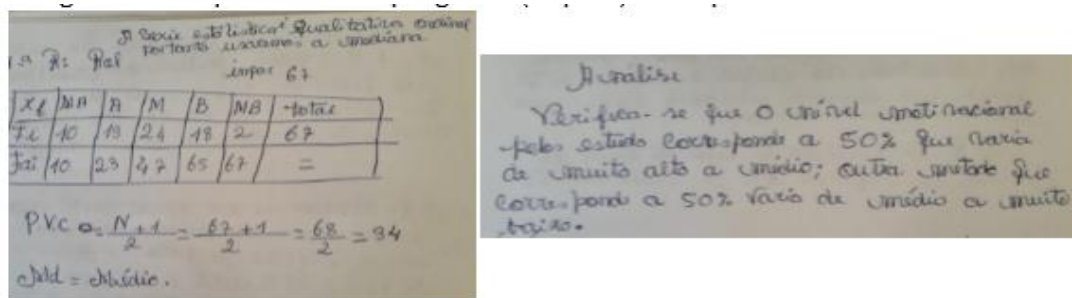 A Serie estatistica é qualitativa ordinal
portanto usamos a mediana
R:
impar 67
Xi MA A M B MB total
Fi 10 13 24 18 2 67
Fai 10 23 47 65 67 =
PVC = N+1/2 = 67+1/2 = 68/2 = 34
Md = Médio.
Análise
Verifica-se que o nível motivacional
pelos estudo corresponde a 50% que varia
de muito alto a médio; outra metade que
corresponde a 50% varia de médio a muito
baixo.